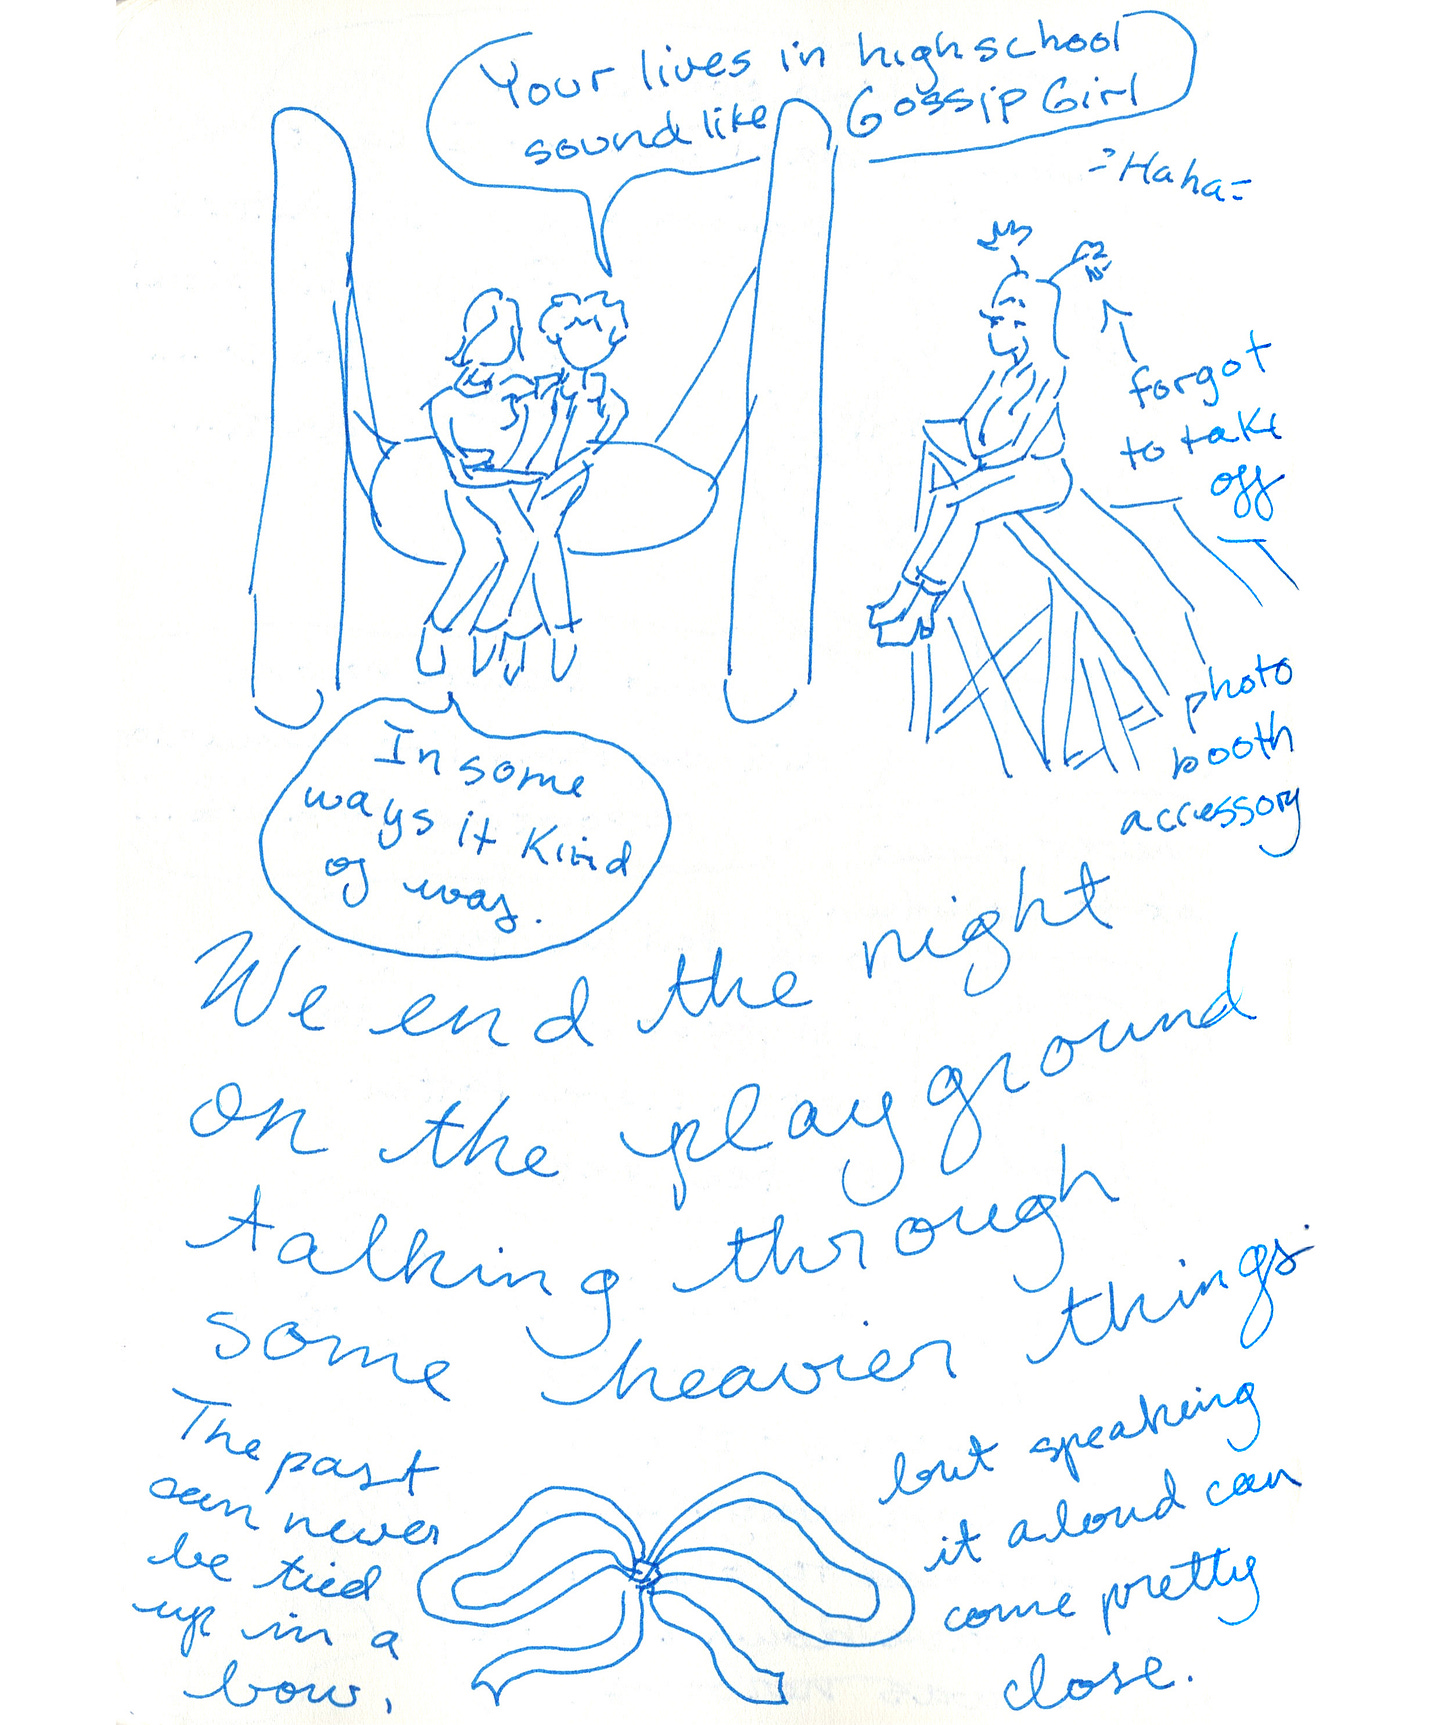 Your lives in highschool
sound like Gossip Girl
=Haha=
forgot
to take
off
photo
booth
accessory
In some
ways it Kind
of was.
We end the night
on the playground
talking through
some heavier things.
The past
can never
be tied
up in a
bow,
but speaking
it aloud can
come pretty
close.